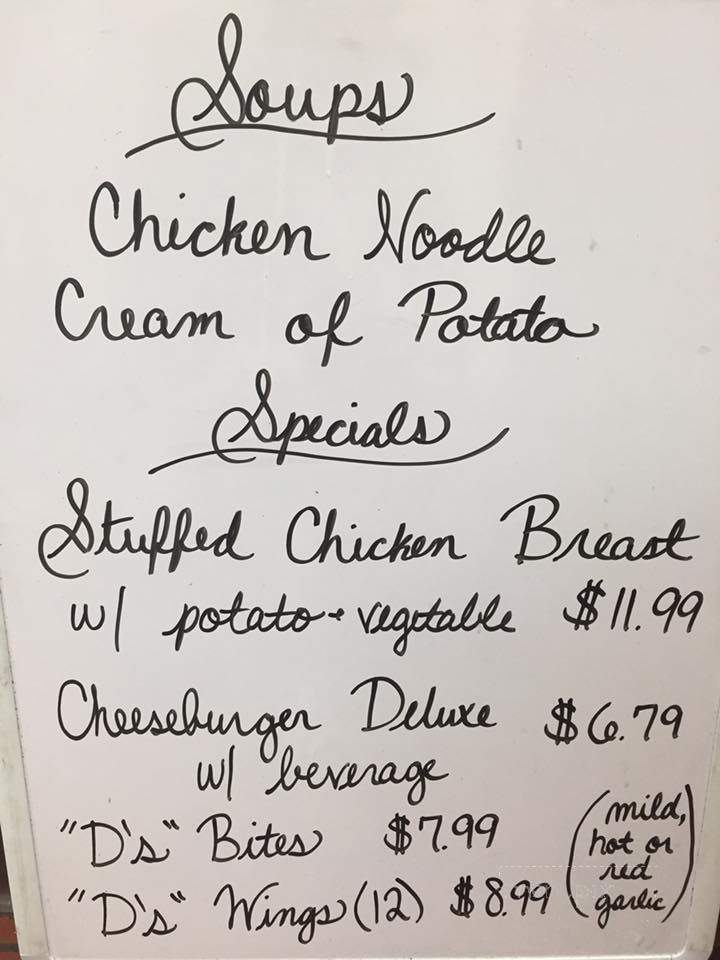 Soups
Chicken Noodle
Cream of Potato
Specials
Stuffed Chicken Breast
w/ potato + vegetable $11.99
Cheeseburger Deluxe $6.79
w/ beverage
"D's" Bites $7.99
"D's" Wings (12) $8.99
(mild,
hot or
red
garlic)